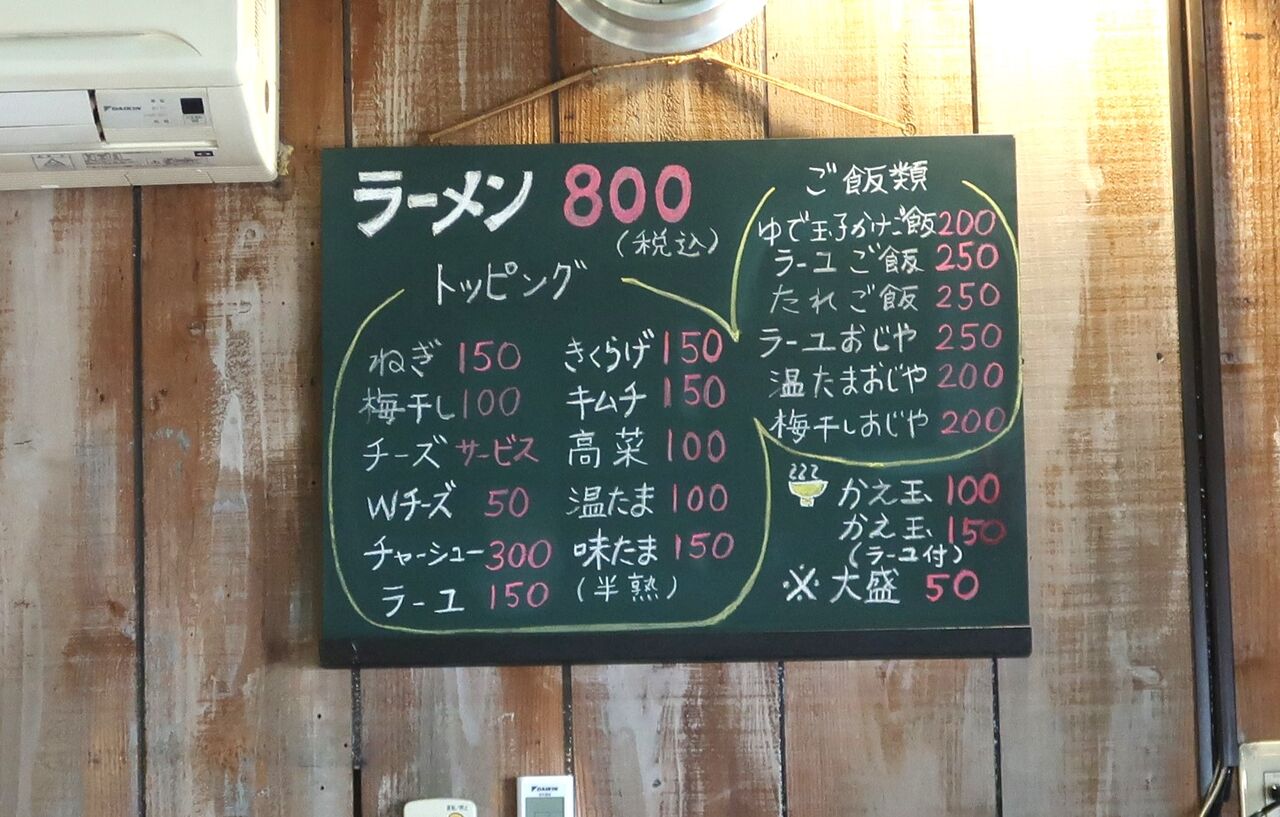 ラーメン 800
(税込)
トッピング
ねぎ 150
梅干し 100
チーズ サービス
Wチーズ 50
チャーシュー 300
ラーユ 150
きくらげ 150
キムチ 150
高菜 100
温たま 100
味たま 150
(半熟)
ご飯類
ゆで玉子かけご飯 200
ラーユご飯 250
たれご飯 250
ラーユおじや 250
温たまおじや 200
梅干しおじや 200
かえ玉 100
かえ玉 150
(ラーユ付)
※大盛 50
DAIKIN
DAIKIN